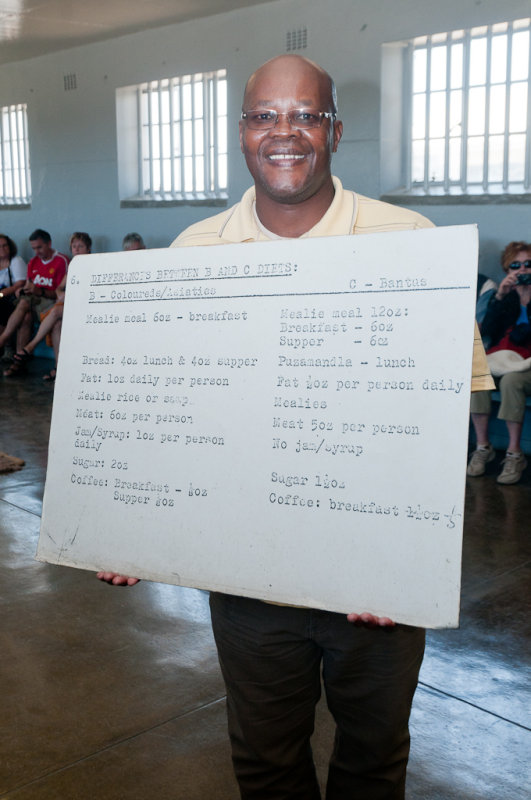 6. DIFFERANCES BETWEEN B AND C DIETS:
B - Coloureds/Asiatics
Mealie meal 6oz - breakfast
Bread: 4oz lunch & 4oz supper
Fat: 1oz daily per person
Mealie rice or samp
Meat: 6oz per person
Jam/Syrup: 1oz per person
daily
Sugar: 2oz
Coffee: Breakfast -
Supper
C - Bantus
Mealie meal 12oz:
Breakfast - 6oz
Supper - 6oz
Puzamandla - lunch
Fat ½oz per person daily
Mealies
Meat 5oz per person
No jam/syrup
Sugar 1½oz
Coffee: breakfast
AON